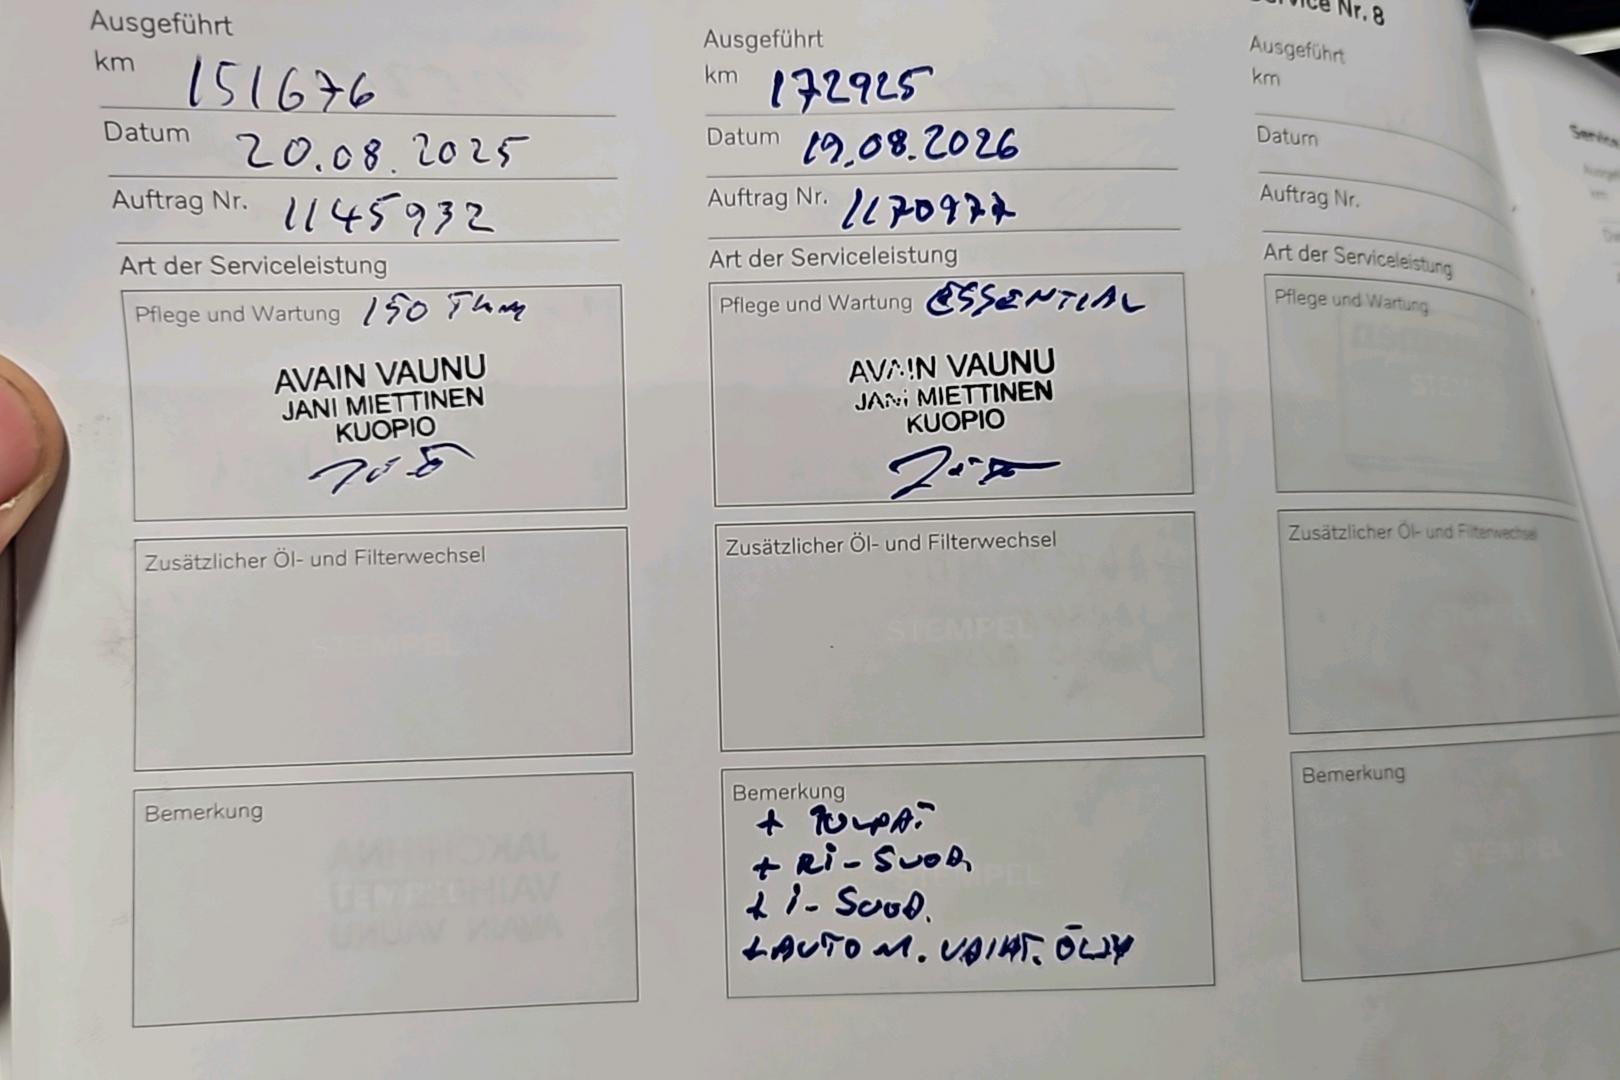 Ausgeführt
km 151676
Datum 20.08.2025
Auftrag Nr. 1145932
Art der Serviceleistung
Pflege und Wartung 150 Tkm
AVAIN VAUNU
JANI MIETTINEN
KUOPIO
Zusätzlicher Öl- und Filterwechsel
STEMPEL
Bemerkung
Ausgeführt
km 172925
Datum 19.08.2026
Auftrag Nr. 1170977
Art der Serviceleistung
Pflege und Wartung ESSENTIAL
AVAIN VAUNU
JANI MIETTINEN
KUOPIO
Zusätzlicher Öl- und Filterwechsel
STEMPEL
Bemerkung
+ TULPAT
+ RI-SUOD.
+ I-SUOD.
+ AUTOM. VAIHT. ÖLJY
Service Nr. 8
Ausgeführt
km
Datum
Auftrag Nr.
Art der Serviceleistung
Pflege und Wartung
Zusätzlicher Öl- und Filterwechsel
Bemerkung
STEMPEL
Service